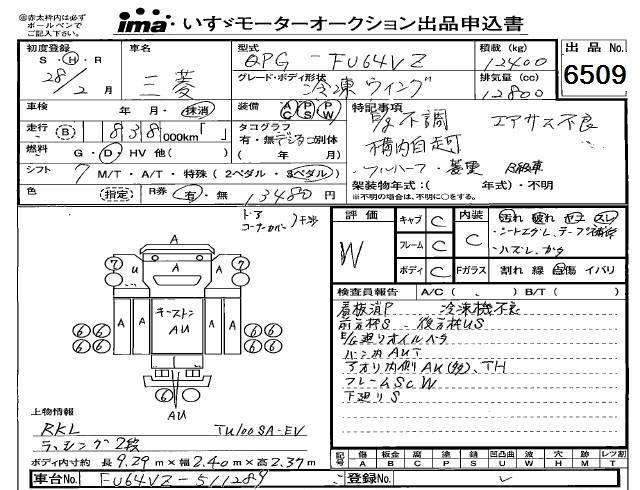 ㊟赤太枠内は必ず
ボールペンで
ご記入下さい。
ima いすゞモーターオークション出品申込書
初度登録
S ・ H ・ R
28/2 月
車名
三菱
型式
QPG - FU64VZ
グレード・ボディ形状
冷凍ウィング
積載 (kg)
12400
排気量 (cc)
12800
出品 No.
6509
車検
年 月・抹消
装備
AC PS PW
特記事項
E/g不調 エアサス不良
構内自走可
フルハーフ・菱重
走行 (B) 838 000km「 」
タコグラフ
有・無 デジタコ別体
( 年 月)
燃料 G ・ D ・ HV 他( )
シフト 7 M/T・A/T・特殊 (2ペダル・3ペダル)
架装物年式:( 年式)・不明
※不明の場合は、不明に○をする。
色 (指定) R券 有・無 13480 円
ドア
コーナーカバー 干渉
評価
W
キャブ C
フレーム C
ボディ C
内装
C
汚れ 破れ コゲ スレ
・シートエグレ、テープ補修
・ハズレ、カケ
Fガラス 割れ 線 白傷 イバリ
検査員報告 A/C ( 、 ) B/T ( )
看板消P 冷凍機不良
前方枠S 後方枠US
E/G廻りオイルベタ
バン内AUT
アオリ内側AU(多)、TH
フレームSc W
下廻りS
A
7 U A A 7
A A A A
キーストン
AU
6 6 6 6
6 6 6 6
6
AU
上物情報
RKL TU100SA-EV
ラッシング2段
ボディ内寸約 長 9.29 m × 幅 2.40 m × 高 2.37 m
記号 傷 A 板金 B 腐 C 塗 P 錆 S 凹凸曲 U 波 W 穴 H 熱 M 汗 T レツ割
車台No. FU64VZ-511289
登録No.